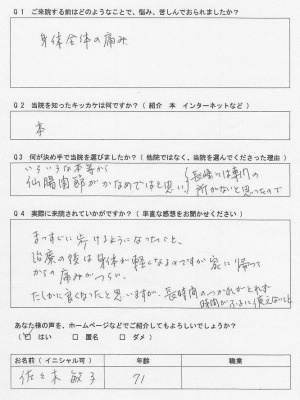 Q1 ご来院する前はどのようなことで、悩み、苦しんでおられましたか？
身体全体の痛み
Q2 当院を知ったキッカケは何ですか？（紹介 本 インターネットなど）
本
Q3 何が決め手で当院を選びましたか？（他院ではなく、当院を選んでくださった理由）
いろいろな本等から
仙腸関節がかなめではと思い、
長崎には専門の
所がないと思ったので
Q4 実際に来院されていかがですか？（率直な感想をお聞かせください）
まっすぐに歩けるようになったこと、
治療の後は身体が軽くなるのですが家に帰って
からの痛みがつらい、
たしかに良くなったと思いますが、長時間のつかれがとれず
時間が
あなた様の声を、ホームページなどでご紹介してもよろしいでしょうか？
（✓）はい （ ）匿名 （ ）ダメ
お名前（イニシャル可） 年齢 職業
佐々木敏子 71